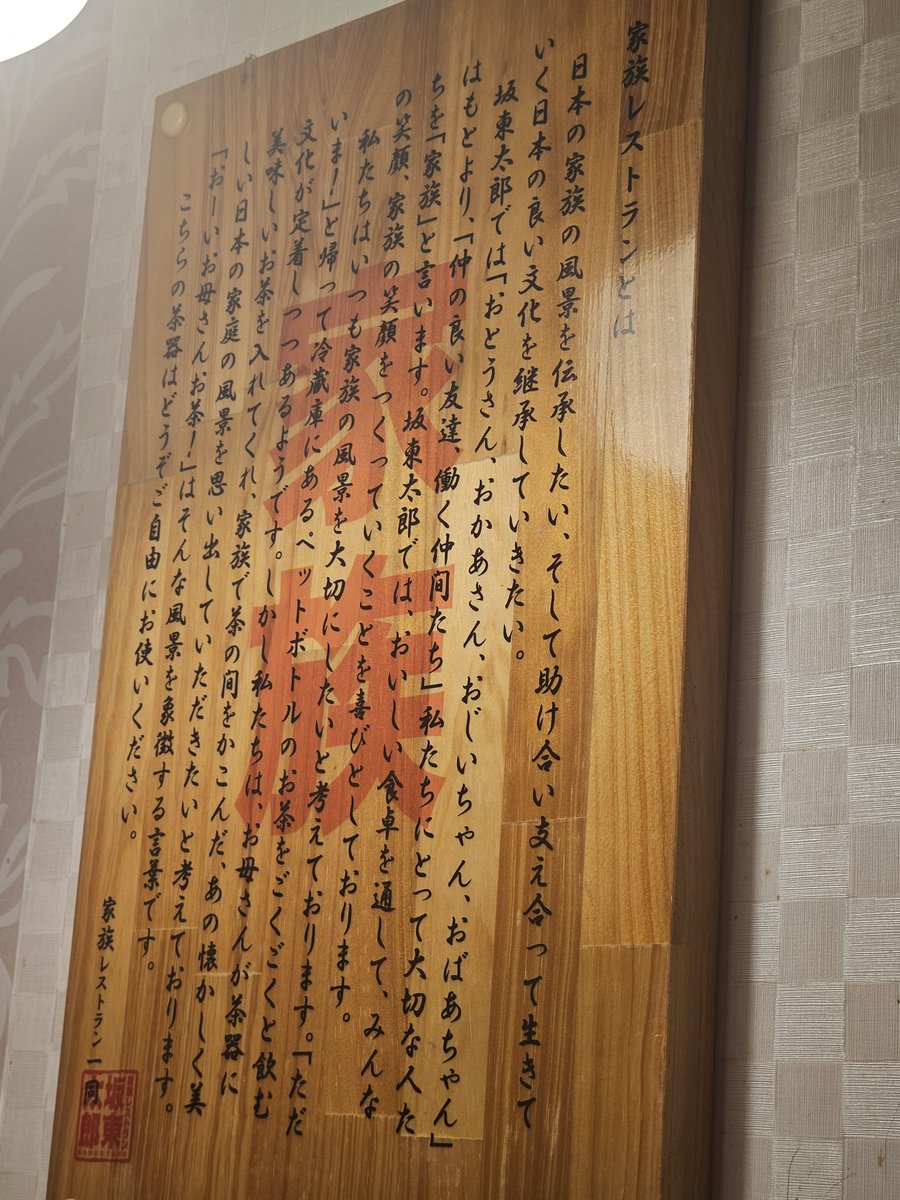 家族レストランとは
日本の家族の風景を伝承したい、そして助け合い支え合って生きて
いく日本の良い文化を継承していきたい。
坂東太郎では「おとうさん、おかあさん、おじいちゃん、おばあちゃん」
はもとより、「仲の良い友達、働く仲間たち」私たちにとって大切な人た
ちを「家族」と言います。坂東太郎では、おいしい食卓を通して、みんな
の笑顔、家族の笑顔をつくっていくことを喜びとしております。
私たちはいつも家族の風景を大切にしたいと考えております。「ただ
いま!」と帰って冷蔵庫にあるペットボトルのお茶をごくごくと飲む
文化が定着しつつあるようです。しかし私たちは、お母さんが茶器に
美味しいお茶を入れてくれ、家族で茶の間をかこんだ、あの懐かしく美
しい日本の家庭の風景を思い出していただきたいと考えております。
「おーいお母さんお茶!」はそんな風景を象徴する言葉です。
こちらの茶器はどうぞご自由にお使いください。
家族レストラン一同
家族
坂東
太郎